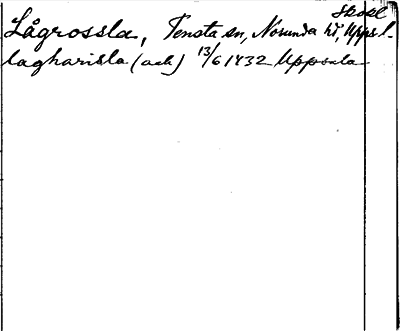 Skokl
Lågrossla, Tensta sn, Norunda hd, Upps l.
lagharisla (ack) 13/6 1432 Uppsala